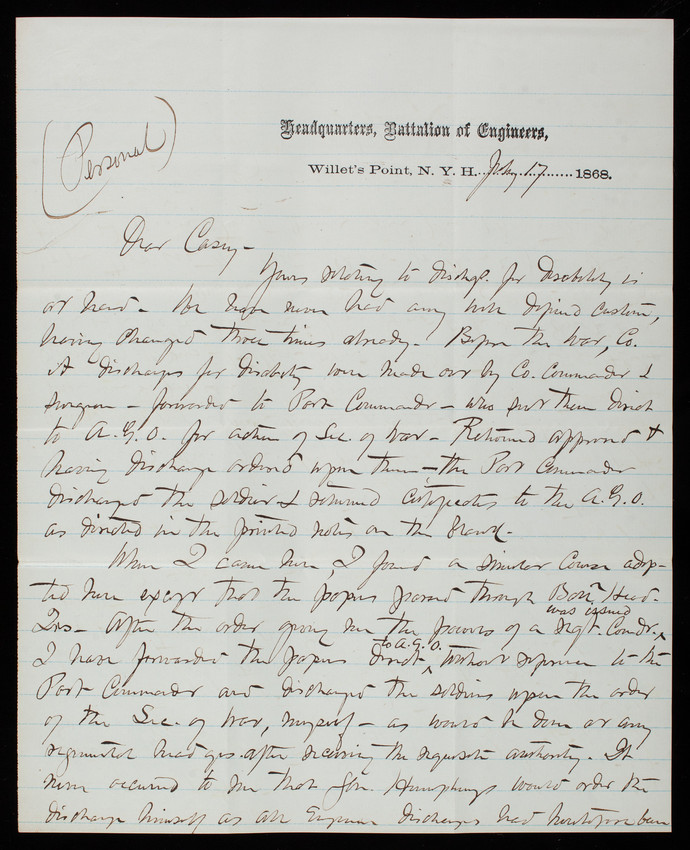 (Personal)
Headquarters, Battalion of Engineers,
Willet's Point, N. Y. H. July 17 1868.
Dear Casey -
Yours relating to dischge. for Disability is
at hand - We have never had any well defined custom,
having changed three times already - Before the War, Co.
A discharges for disability were made out by Co. Commander &
surgeon - forwarded to Post Commander - who sent them direct
to A.G.O. for action of Sec. of War - Returned approved &
having discharge ordered upon them - the Post Commander
discharged the soldier & returned certificates to the A.G.O.
as directed in the printed notes on the blank.
When I came here, I found a similar course adop-
ted here except that the papers passed through Batn. Head
Qrs - After the order giving me the powers of a regt. Comdr. was issued
I have forwarded the papers direct to A.G.O. without reference to the
Post Commander and discharged the soldiers upon the order
of the Sec. of War, myself - as would be done at any
regimental head qrs. after receiving the requisite authority. It
never occurred to me that Gen. Humphreys would order the
discharge himself as all Engineer discharges had heretofore been